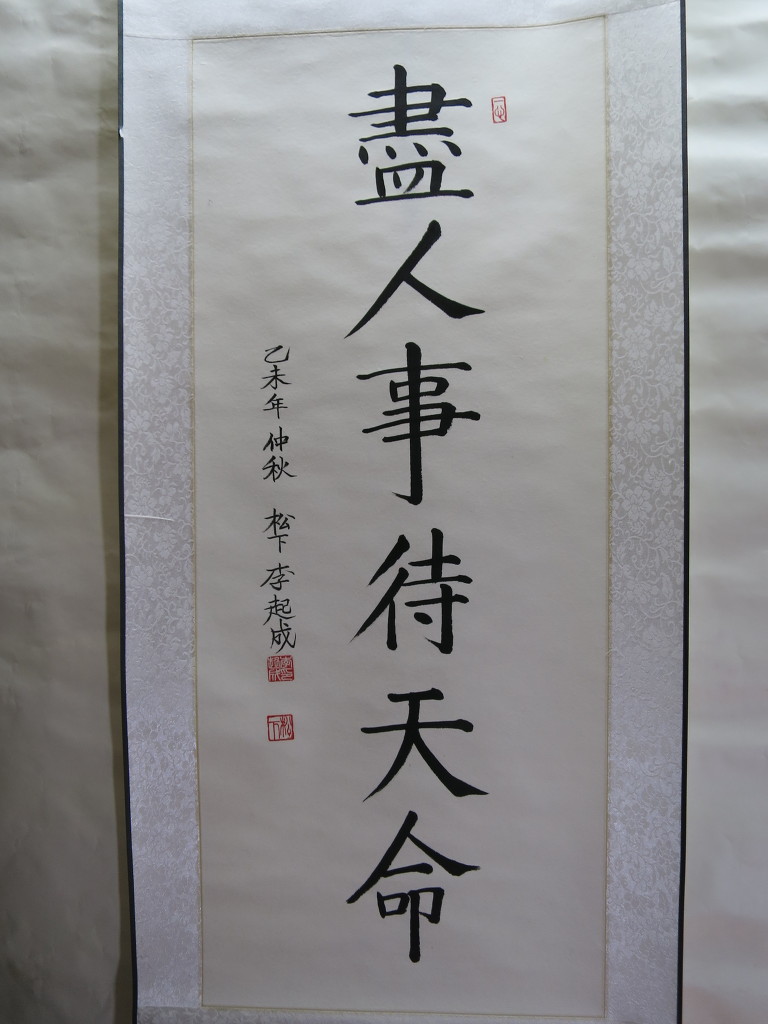 盡人事待天命
乙未年仲秋 松下李起成
松下